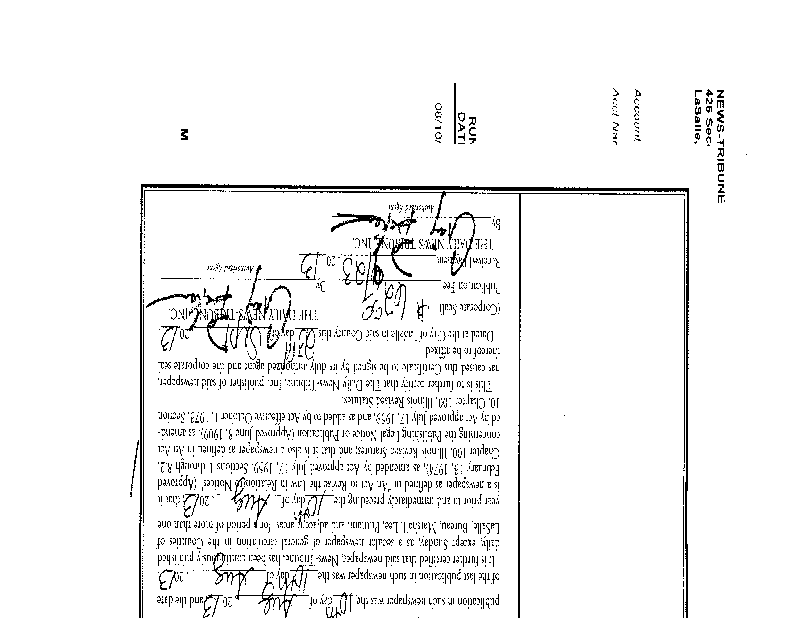 publication in such newspaper was the 10th day of Aug 2013 and the date
of the last publication in such newspaper was the 10th day of Aug, 2013
It is further certified that said newspaper, News-Tribune, has been continuously published
daily, except Sunday, as a secular newspaper of general circulation in the Counties of
LaSalle, Bureau, Marshall, Lee, Putnam, and adjacent areas, for a period of more than one
year prior to and immediately preceding the 10th day of Aug, 2013 that it
is a newspaper as defined in "An Act to Revise the Law in Relation to Notices" (Approved
February 13, 1874), as amended by Act approved July 17, 1959, Sections 1 through 8.2,
Chapter 100, Illinois Revised Statutes, and that it is also a newspaper as defined in An Act
concerning the Publishing Legal Notice or Publication (Approved June 8, 1909), as amend-
ed by Act approved July 17, 1959, and as added to by Act effective October 1, 1973, Section
10, Chapter 100, Illinois Revised Statutes.
This is to further certify that The Daily News-Tribune, Inc. publisher of said newspaper,
has caused this Certificate to be signed by its duly authorized agent and the corporate seal
thereof to be affixed
Dated at the City of Lasalle in said County this day of Sept 2013
THE DAILY NEWS-TRIBUNE, INC.
(Corporate Seal)
By
Publication Fee
Authorized Agent
Received Payment 9/23, 2013
THE DAILY NEWS-TRIBUNE, INC.
By
Authorized Agent
M
RUN
DATE
08/10/
Account
Acct Nar
NEWS-TRIBUNE
426 Sec
LaSalle,